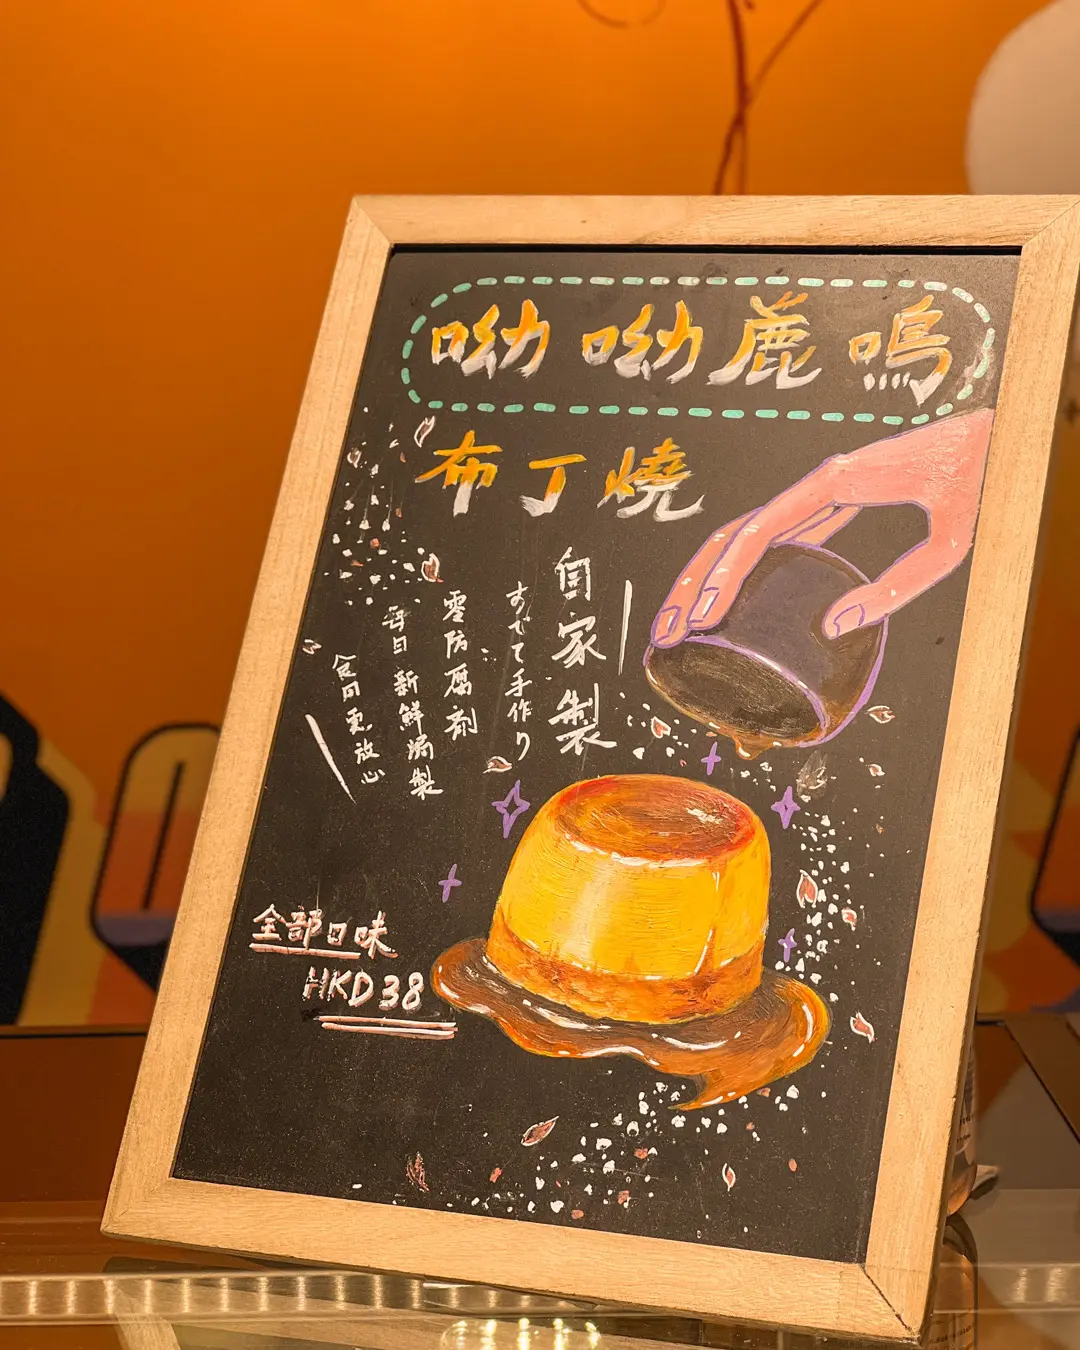 呦呦鹿鳴
布丁燒
自家製
すべて手作り
零防腐剂
每日新鮮焗製
食更放心
全部口味
HKD38